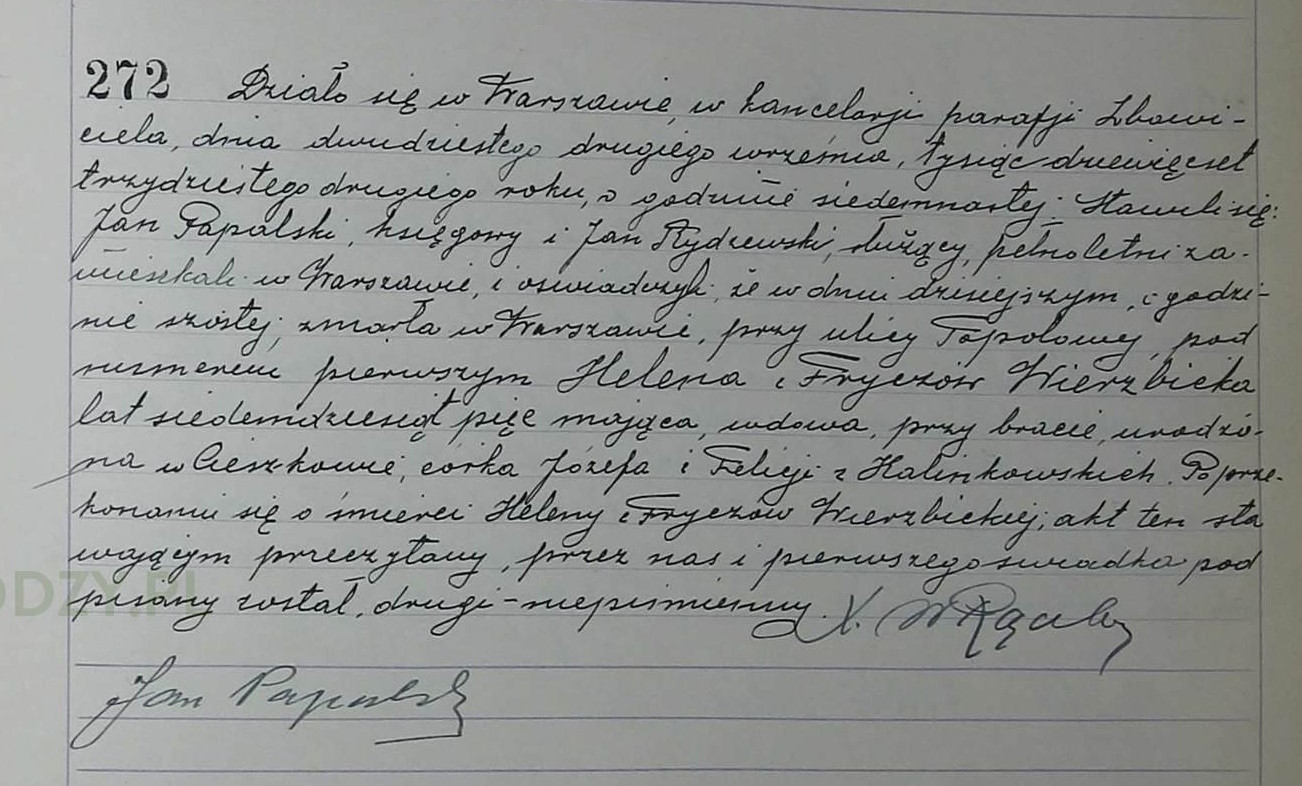 272 Działo się w Warszawie, w kancelarji parafji Zbawi-
ciela, dnia dwudziestego drugiego września, tysiąc dziewięcset
trzydziestego drugiego roku, o godzinie siedemnastej. Stawili się:
Jan Papalski, księgowy i Jan Rydzewski, służący, pełnoletni za-
mieszkali w Warszawie, i oświadczyli, że w dniu dzisiejszym, o godzi-
nie szóstej, zmarła w Warszawie, przy ulicy Topolowej, pod
numerem pierwszym Helena z Fryczów Wierzbicka
lat siedemdziesiąt pięć mająca, wdowa, przy bracie, urodzo-
na w Cieszkowie, córka Józefa i Felicji z Kalinkowskich. Po prze-
konaniu się o śmierci Heleny z Fryczów Wierzbickiej, akt ten sta
wającym przeczytany, przez nas i pierwszego świadka pod
pisany został, drugi - niepiśmienny. X.
Jan Papalski
ODZY.PL